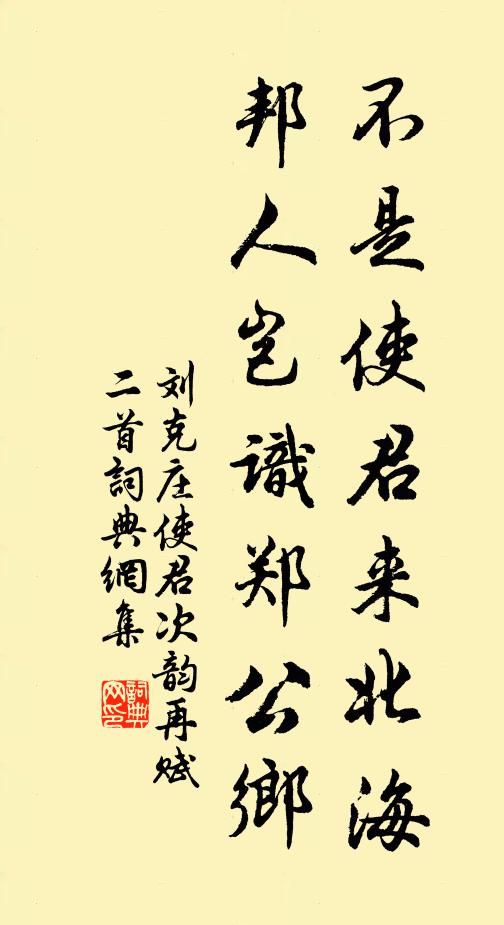 不是使君来北海
邦人岂識郑公鄉
刘克庄使君次韵再赋
二首詞典網集
詞典网印